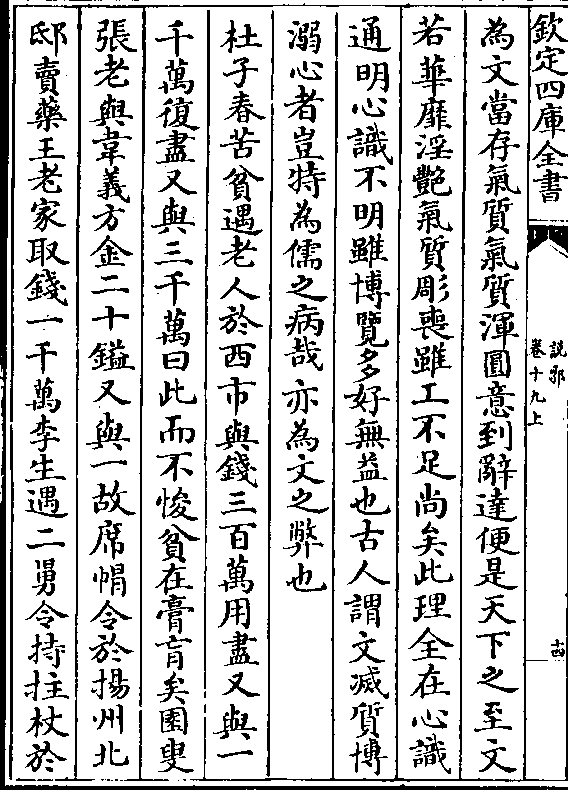 欽定四庫全書
說郛
卷十九上
十四
為文當存氣質氣質渾圓意到辭達便是天下之至文
若華靡淫艷氣質彫喪雖工不足尚矣此理全在心識
通明心識不明雖博覽多好無益也古人謂文滅質博
溺心者豈特為儒之病哉亦為文之弊也
杜子春苦貧遇老人於西市與錢三百萬用盡又與一
千萬復盡又與三千萬曰此而不悛貧在膏肓矣園叟
張老與韋義方金二十鎰又與一故席㡌令於揚州北
邸賣藥王老家取錢一千萬李生遇二舅令持拄杖於